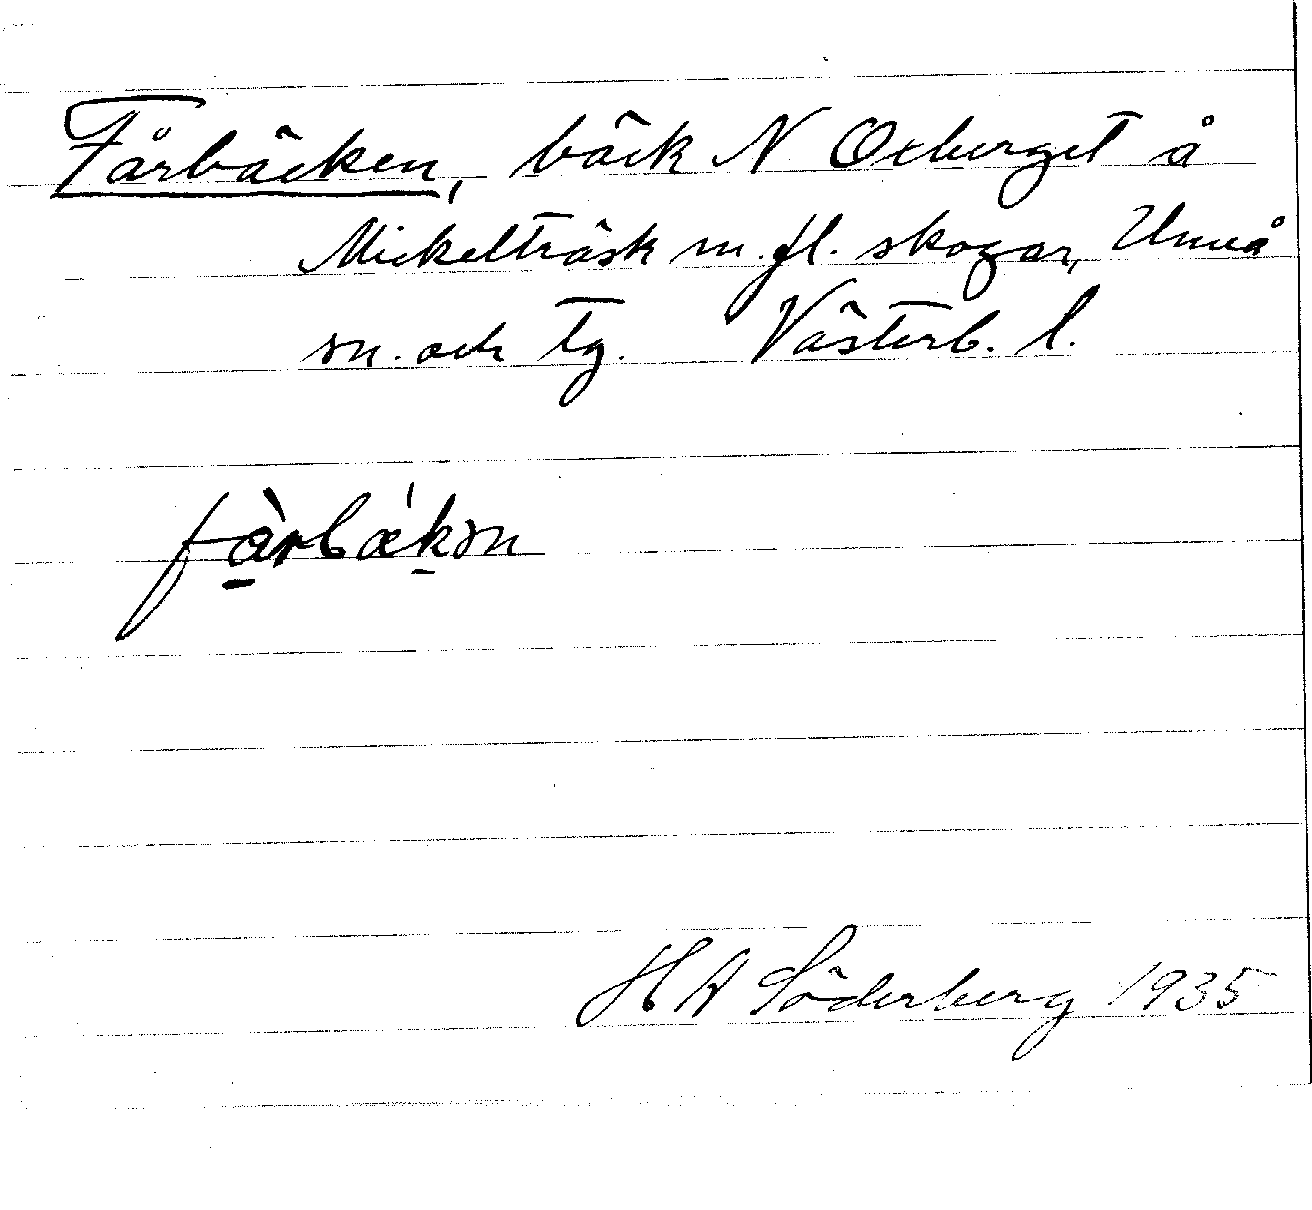 Fårbäcken, bäck N Oxberget å
Mickelträsk m.fl. skogar, Umeå
sn. och tg. Västerb. l.
fàrbækən
H A Söderberg 1935